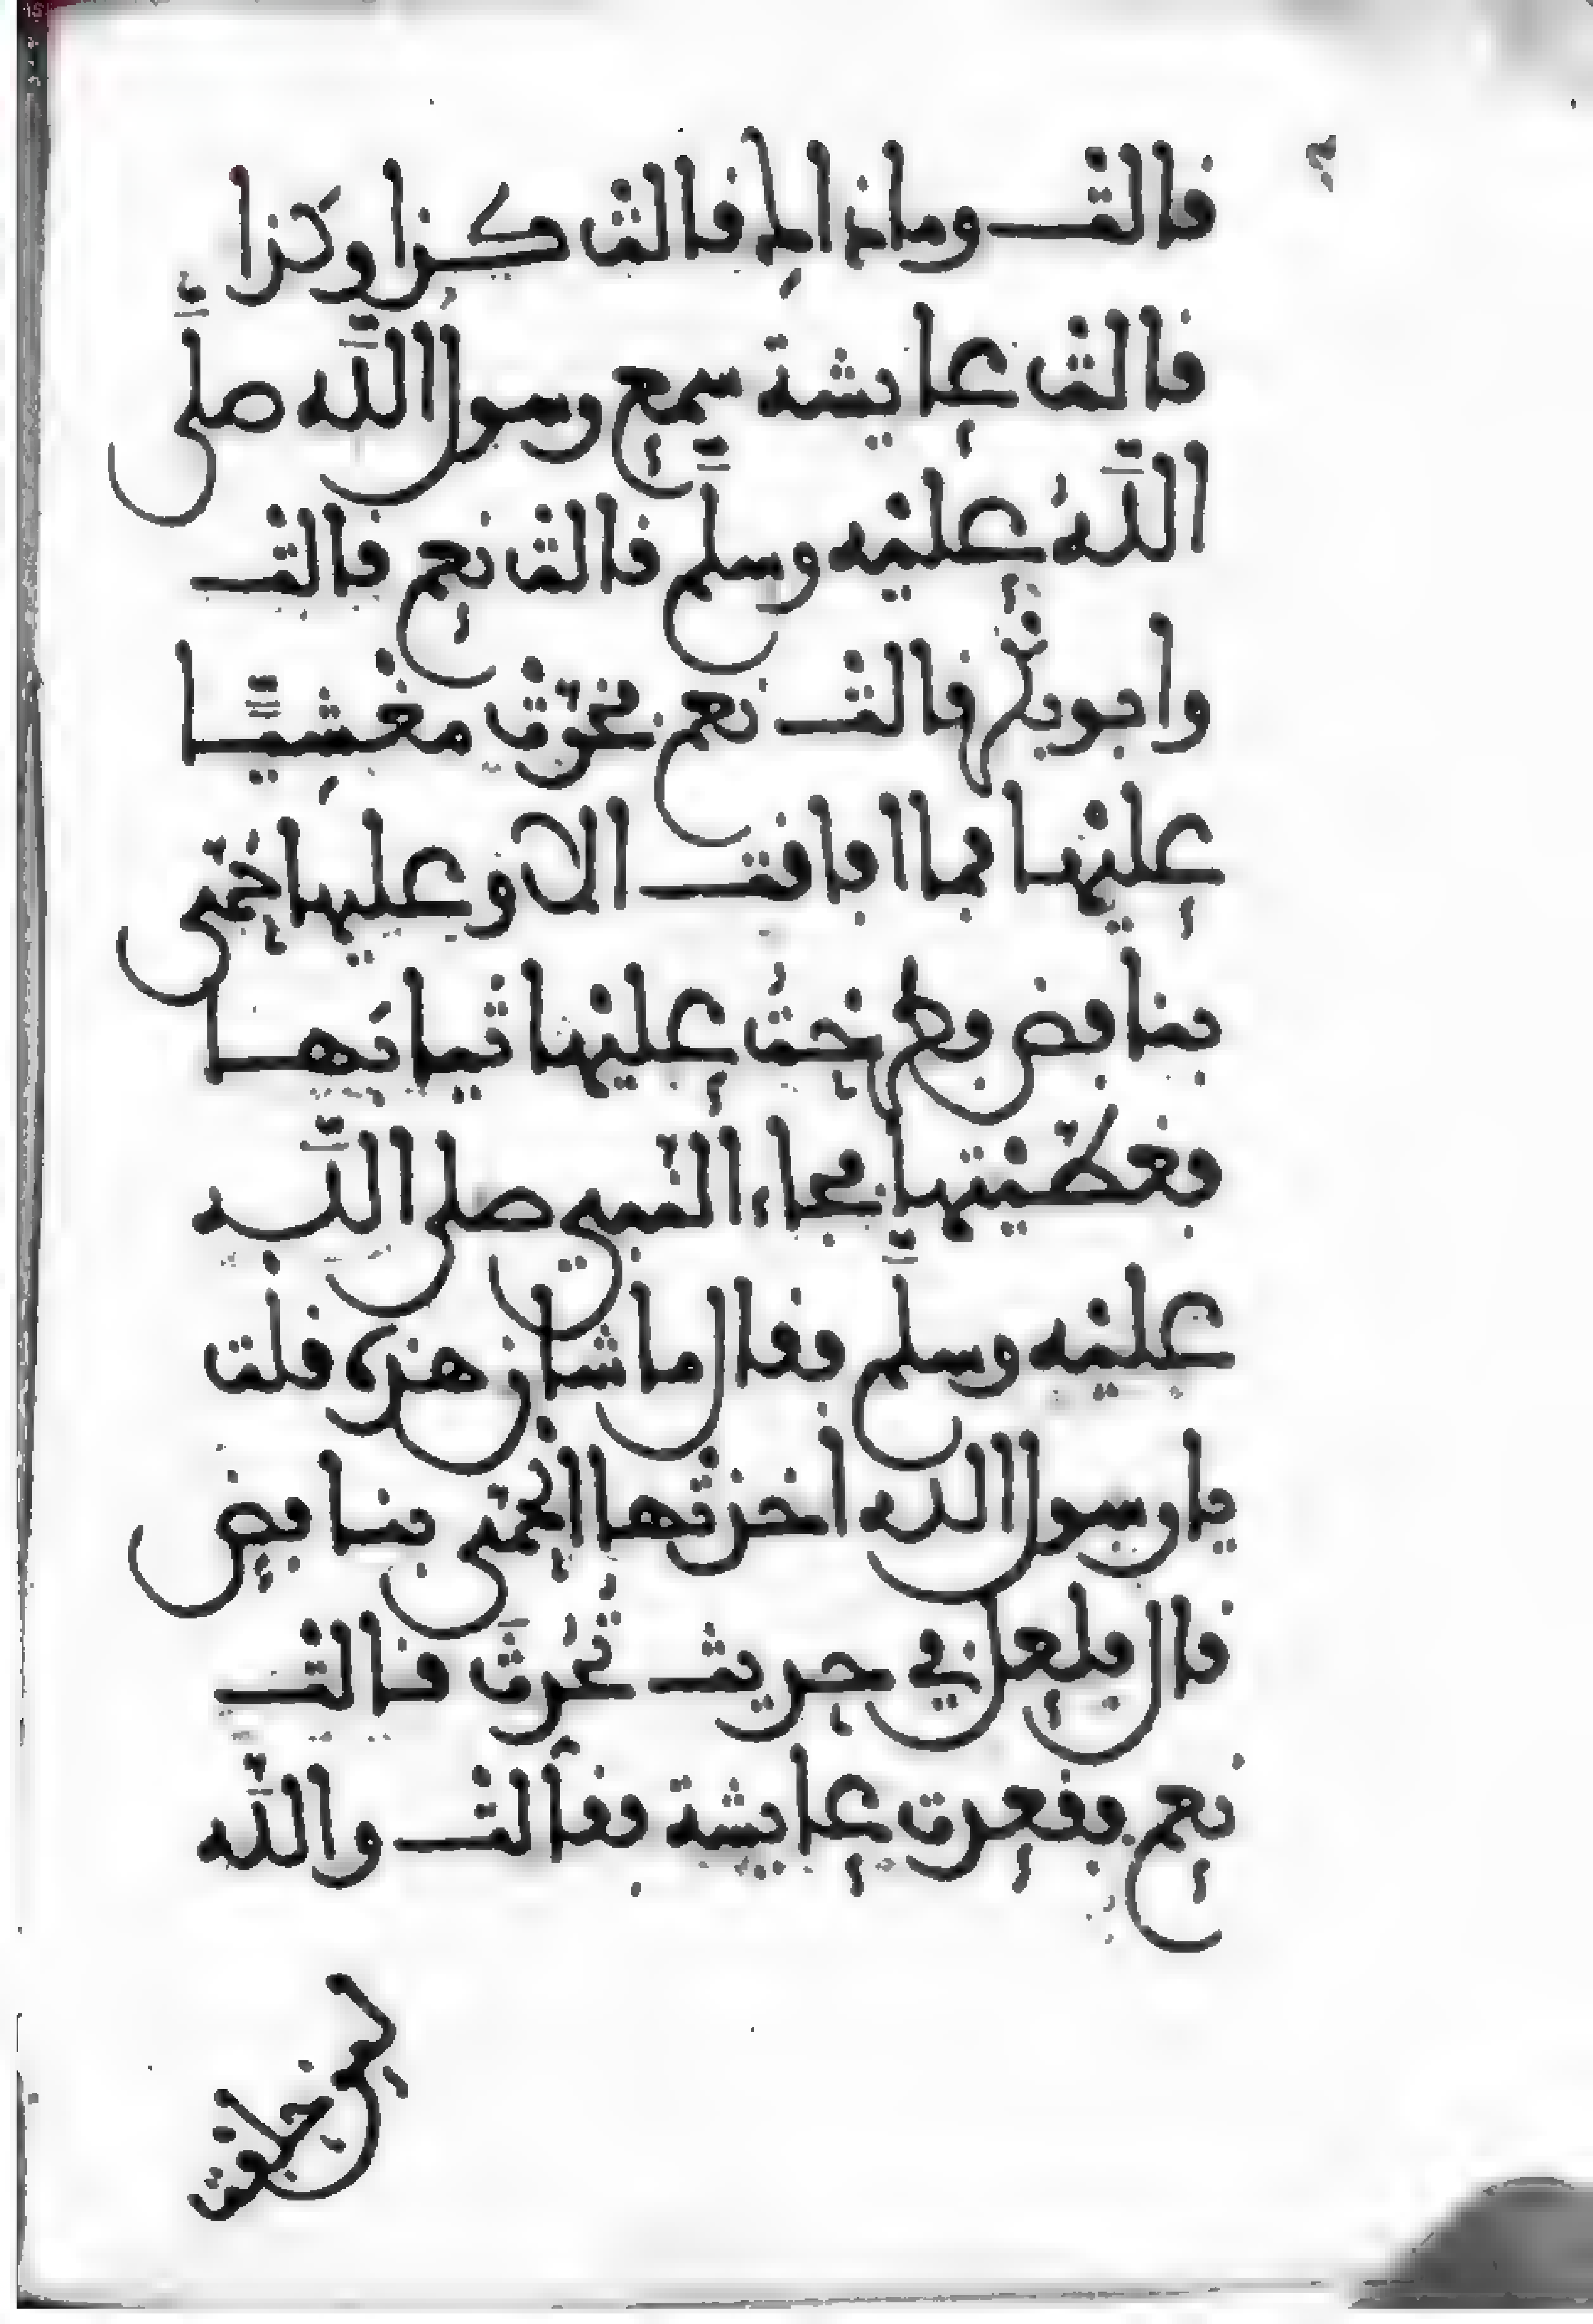 قالت وماذاك قالت كذا وكذا
قالت عايشة سمع رسول الله صلى
الله عليه وسلم قالت نعم قالت
وابو بكر قالت نعم فخرت مغشيا
عليها فما افاقت الا وعليها حمى
بنافض فطرحت عليها ثيابها
فغطيتها فجاء النبي صلى الله
عليه وسلم فقال ما شان هذه قلت
يا رسول الله اخذتها الحمى بنافض
قال فلعل في حديث تحدث قالت
نعم فقعدت عايشة فقالت والله
لين حلفت